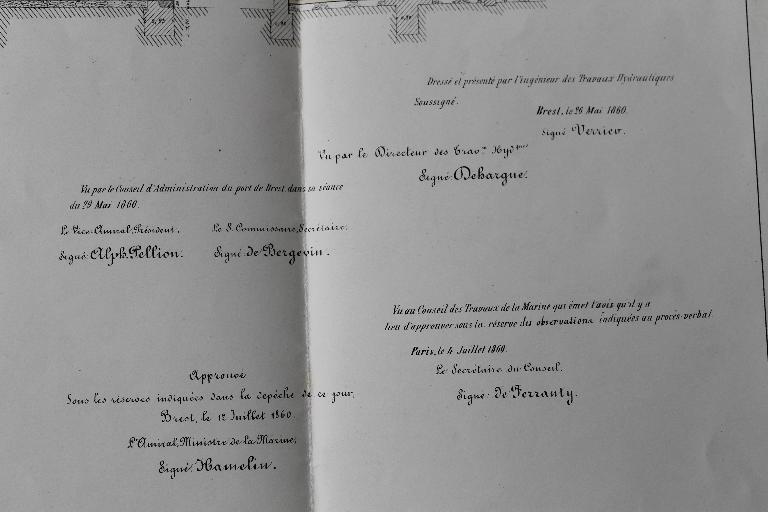 Dressé et présenté par l'Ingénieur des Travaux Hydrauliques
Soussigné.
Brest, le 26 Mai 1860.
Signé Verrier.
Vu par le Directeur des Trav.ˣ Hyd.ques
Signé: Dehargne.
Vu par le Conseil d'Administration du port de Brest dans sa séance
du 29 Mai 1860.
Le Vice-Amiral, Président,
Signé: Alph. Pellion.
Le S. Commissaire, Secrétaire.
Signé: de Bergevin.
Vu au Conseil des Travaux de la Marine qui émet l'avis qu'il y a
lieu d'approuver sous la réserve des observations indiquées au procès-verbal.
Paris, le 4 Juillet 1860.
Le Secrétaire du Conseil.
Signé: de Ferranty.
Approuvé
Sous les réserves indiquées dans la dépêche de ce jour.
Brest, le 12 Juillet 1860.
L'Amiral, Ministre de la Marine,
Signé: Hamelin.